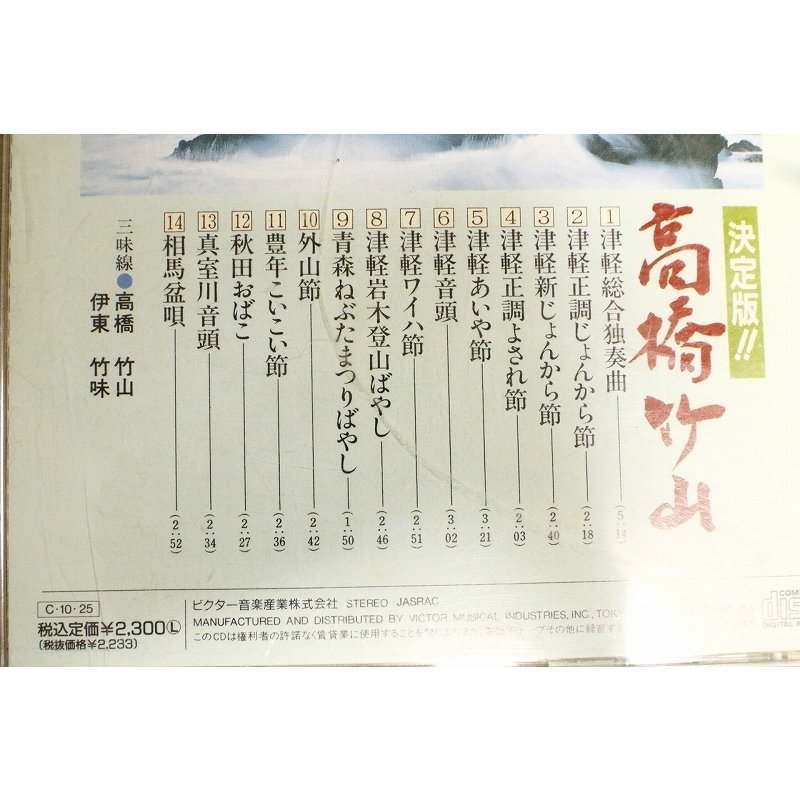 決定版!!
高橋竹山
1 津軽総合独奏曲 (5:14)
2 津軽正調じょんから節 (2:18)
3 津軽新じょんから節 (2:40)
4 津軽正調よされ節 (2:03)
5 津軽あいや節 (3:21)
6 津軽音頭 (3:02)
7 津軽ワイハ節 (2:51)
8 津軽岩木登山ばやし (2:46)
9 青森ねぶたまつりばやし (1:50)
10 外山節 (2:42)
11 豊年こいこい節 (2:36)
12 秋田おばこ (2:27)
13 真室川音頭 (2:34)
14 相馬盆唄 (2:52)
三味線●高橋 竹山
伊東 竹味
C·10·25
税込定価¥2,300Ⓛ
(税抜価格¥2,233)
ビクター音楽産業株式会社 STEREO JASRAC
MANUFACTURED AND DISTRIBUTED BY VICTOR MUSICAL INDUSTRIES, INC.,
このCDは権利者の許諾なく賃貸業に使用することを
その他に録音す
disc